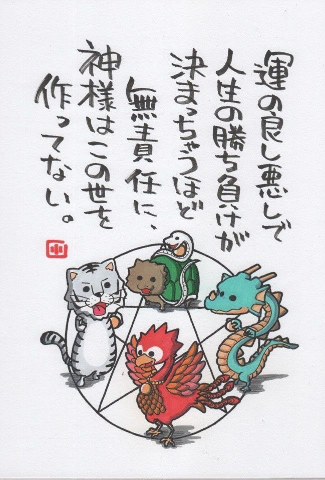 運の良し悪しで
人生の勝ち負けが
決まっちゃうほど
無責任に、
神様はこの世を
作ってない。